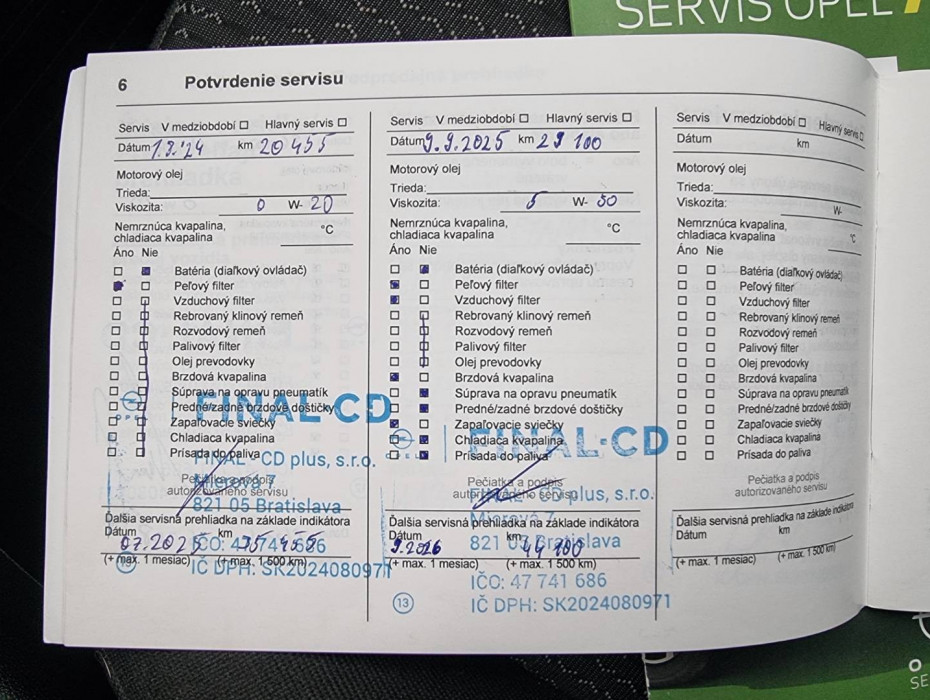 SERVIS OPEL
6 Potvrdenie servisu
Servis V medziobdobí Hlavný servis
Dátum km 20 455
Motorový olej
Trieda:
Viskozita: 0 W- 20
Nemrznúca kvapalina,
chladiaca kvapalina °C
Áno Nie
Batéria (diaľkový ovládač)
Peľový filter
Vzduchový filter
Rebrovaný klinový remeň
Rozvodový remeň
Palivový filter
Olej prevodovky
Brzdová kvapalina
Súprava na opravu pneumatík
Predné/zadné brzdové doštičky
Zapaľovacie sviečky
Chladiaca kvapalina
Prísada do paliva
FINAL-CD
FINAL-CD plus, s.r.o.
Migrová 7
821 05 Bratislava
Pečiatka a podpis
autorizovaného servisu
Ďalšia servisná prehliadka na základe indikátora
Dátum km
07.2025 35 455
(+ max. 1 mesiac) (+ max. 1 500 km)
IČ DPH: SK2024080971
Servis V medziobdobí Hlavný servis
Dátum 9.9.2025 km 29 100
Motorový olej
Trieda:
Viskozita: 5 W- 30
Nemrznúca kvapalina,
chladiaca kvapalina °C
Áno Nie
Batéria (diaľkový ovládač)
Peľový filter
Vzduchový filter
Rebrovaný klinový remeň
Rozvodový remeň
Palivový filter
Olej prevodovky
Brzdová kvapalina
Súprava na opravu pneumatík
Predné/zadné brzdové doštičky
Zapaľovacie sviečky
Chladiaca kvapalina
Prísada do paliva
FINAL-CD
Pečiatka a podpis
autorizovaného servisu
FINAL-CD plus, s.r.o.
821 05 Bratislava
Ďalšia servisná prehliadka na základe indikátora
Dátum km
9.2026 44 100
(+ max. 1 mesiac) (+ max. 1 500 km)
IČO: 47 741 686
IČ DPH: SK2024080971
13
Servis V medziobdobí Hlavný servis
Dátum km
Motorový olej
Trieda:
Viskozita: W-
Nemrznúca kvapalina,
chladiaca kvapalina °C
Áno Nie
Batéria (diaľkový ovládač)
Peľový filter
Vzduchový filter
Rebrovaný klinový remeň
Rozvodový remeň
Palivový filter
Olej prevodovky
Brzdová kvapalina
Súprava na opravu pneumatík
Predné/zadné brzdové doštičky
Zapaľovacie sviečky
Chladiaca kvapalina
Prísada do paliva
Pečiatka a podpis
autorizovaného servisu
Ďalšia servisná prehliadka na základe indikátora
Dátum km
(+ max. 1 mesiac) (+ max. 1 500 km)
SE